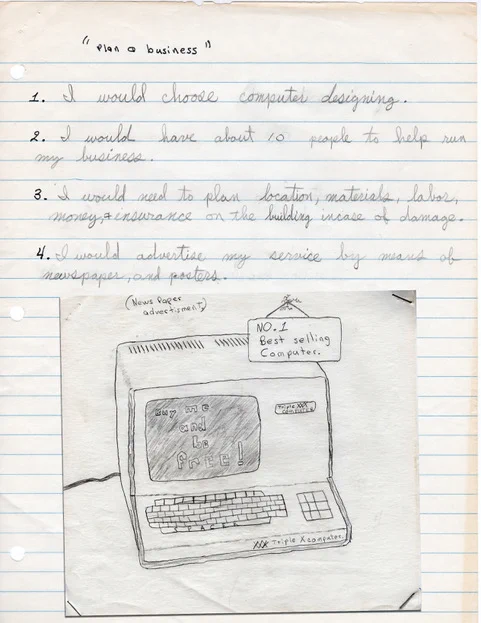 "Plan a business"
1. I would choose computer designing.
2. I would have about 10 people to help run
my business.
3. I would need to plan location, materials, labor,
money, + insurance on the building incase of damage.
4. I would advertise my service by means of
newspaper, and posters.
(News Paper
advertisment)
NO. 1
Best selling
Computer.
Buy me
and
be
free!
Triple XXX
computer
SPACER
XXX Triple X computer.